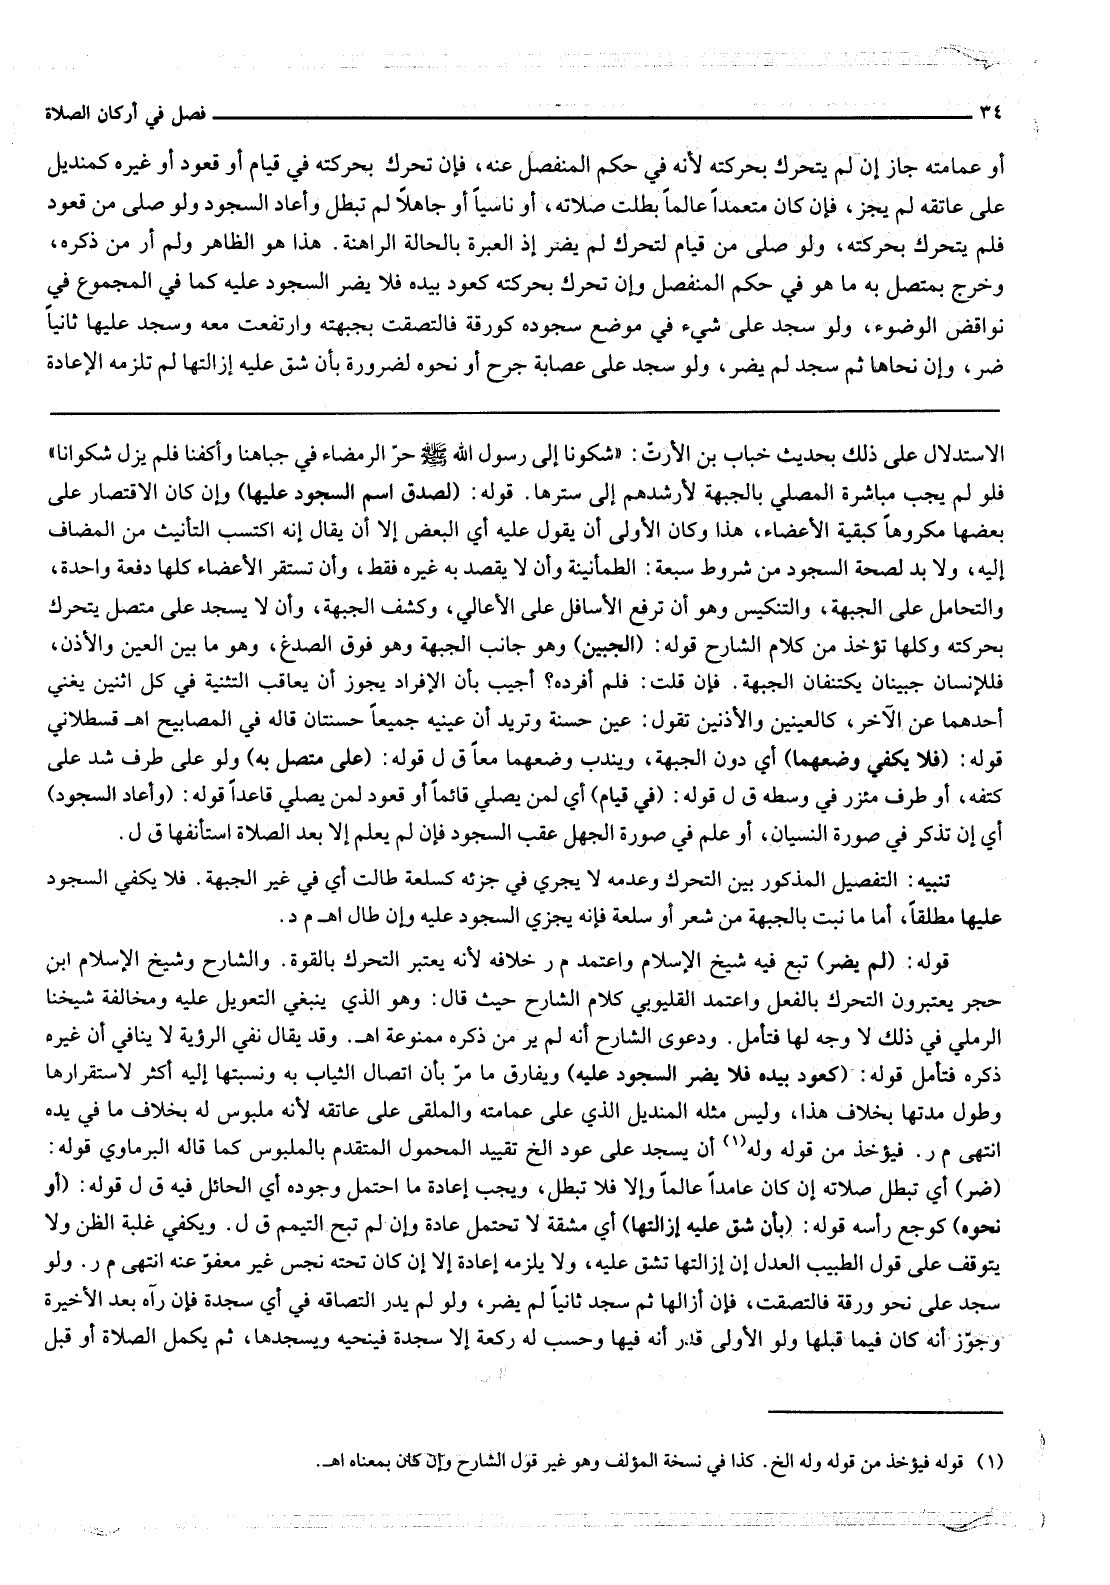 ٣٤ فصل في أركان الصلاة
أو عمامته جاز إن لم يتحرك بحركته لأنه في حكم المنفصل عنه، فإن تحرك بحركته في قيام أو قعود أو غيره كمنديل
على عاتقه لم يجز، فإن كان متعمداً عالماً بطلت صلاته، أو ناسياً أو جاهلاً لم تبطل وأعاد السجود ولو صلى من قعود
فلم يتحرك بحركته، ولو صلى من قيام لتحرك لم يضر إذ العبرة بالحالة الراهنة. هذا هو الظاهر ولم أر من ذكره،
وخرج بمتصل به ما هو في حكم المنفصل وإن تحرك بحركته كعود بيده فلا يضر السجود عليه كما في المجموع في
نواقض الوضوء، ولو سجد على شيء في موضع سجوده كورقة فالتصقت بجبهته وارتفعت معه وسجد عليها ثانياً
ضر، وإن نحاها ثم سجد لم يضر، ولو سجد على عصابة جرح أو نحوه لضرورة بأن شق عليه إزالتها لم تلزمه الإعادة
الاستدلال على ذلك بحديث خباب بن الأرتّ: «شكونا إلى رسول الله ﷺ حرّ الرمضاء في جباهنا وأكفنا فلم يزل شكوانا»
فلو لم يجب مباشرة المصلي بالجبهة لأرشدهم إلى سترها. قوله: (لصدق اسم السجود عليها) وإن كان الاقتصار على
بعضها مكروهاً كبقية الأعضاء، هذا وكان الأولى أن يقول عليه أي البعض إلا أن يقال إنه اكتسب التأنيث من المضاف
إليه، ولا بد لصحة السجود من شروط سبعة: الطمأنينة وأن لا يقصد به غيره فقط، وأن تستقر الأعضاء كلها دفعة واحدة،
والتحامل على الجبهة، والتنكيس وهو أن ترفع الأسافل على الأعالي، وكشف الجبهة، وأن لا يسجد على متصل يتحرك
بحركته وكلها تؤخذ من كلام الشارح قوله: (الجبين) وهو جانب الجبهة وهو فوق الصدغ، وهو ما بين العين والأذن،
فللإنسان جبينان يكتنفان الجبهة. فإن قلت: فلم أفرده؟ أجيب بأن الإفراد يجوز أن يعاقب التثنية في كل اثنين يغني
أحدهما عن الآخر، كالعينين والأذنين تقول: عين حسنة وتريد أن عينيه جميعاً حسنتان قاله في المصابيح اهـ قسطلاني
قوله: (فلا يكفي وضعهما) أي دون الجبهة، ويندب وضعهما معاً ق ل قوله: (على متصل به) ولو على طرف شد على
كتفه، أو طرف مئزر في وسطه ق ل قوله: (في قيام) أي لمن يصلي قائماً أو قعود لمن يصلي قاعداً قوله: (وأعاد السجود)
أي إن تذكر في صورة النسيان، أو علم في صورة الجهل عقب السجود فإن لم يعلم إلا بعد الصلاة استأنفها ق ل.
تنبيه: التفصيل المذكور بين التحرك وعدمه لا يجري في جزئه كسلعة طالت أي في غير الجبهة. فلا يكفي السجود
عليها مطلقاً، أما ما نبت بالجبهة من شعر أو سلعة فإنه يجزي السجود عليه وإن طال اهـ م د.
قوله: (لم يضر) تبع فيه شيخ الإسلام واعتمد م ر خلافه لأنه يعتبر التحرك بالقوة. والشارح وشيخ الإسلام ابن
حجر يعتبرون التحرك بالفعل واعتمد القليوبي كلام الشارح حيث قال: وهو الذي ينبغي التعويل عليه ومخالفة شيخنا
الرملي في ذلك لا وجه لها فتأمل. ودعوى الشارح أنه لم ير من ذكره ممنوعة اهـ. وقد يقال نفي الرؤية لا ينافي أن غيره
ذكره فتأمل قوله: (كعود بيده فلا يضر السجود عليه) ويفارق ما مرّ بأن اتصال الثياب به ونسبتها إليه أكثر لاستقرارها
وطول مدتها بخلاف هذا، وليس مثله المنديل الذي على عمامته والملقى على عاتقه لأنه ملبوس له بخلاف ما في يده
انتهى م ر. فيؤخذ من قوله وله(١) أن يسجد على عود الخ تقييد المحمول المتقدم بالملبوس كما قاله البرماوي قوله:
(ضر) أي تبطل صلاته إن كان عامداً عالماً وإلا فلا تبطل، ويجب إعادة ما احتمل وجوده أي الحائل فيه ق ل قوله: (أو
نحوه) كوجع رأسه قوله: (بأن شق عليه إزالتها) أي مشقة لا تحتمل عادة وإن لم تبح التيمم ق ل. ويكفي غلبة الظن ولا
يتوقف على قول الطبيب العدل إن إزالتها تشق عليه، ولا يلزمه إعادة إلا إن كان تحته نجس غير معفوّ عنه انتهى م ر. ولو
سجد على نحو ورقة فالتصقت، فإن أزالها ثم سجد ثانياً لم يضر، ولو لم يدر التصاقه في أي سجدة فإن رآه بعد الأخيرة
وجوّز أنه كان فيما قبلها ولو الأولى قدر أنه فيها وحسب له ركعة إلا سجدة فينحيه ويسجدها، ثم يكمل الصلاة أو قبل
(١) قوله فيؤخذ من قوله وله الخ. كذا في نسخة المؤلف وهو غير قول الشارح وإن كان بمعناه اهـ.